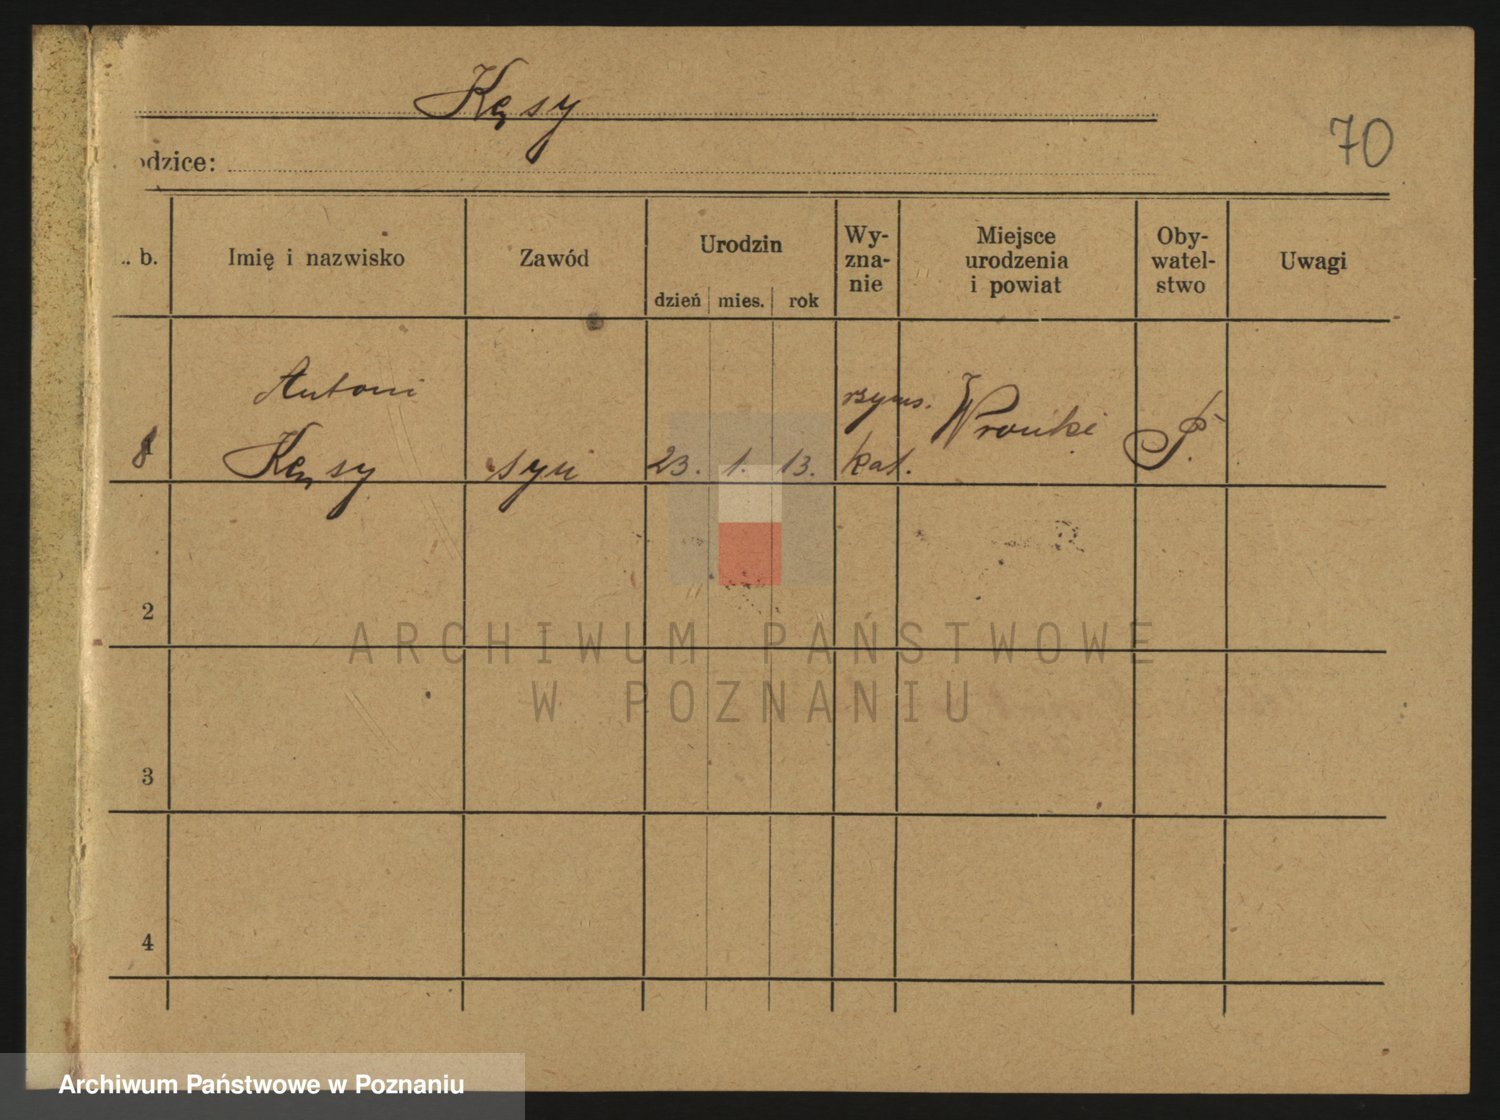 Kęsy
70
odzice:
.. b.
Imię i nazwisko
Zawód
Urodzin
dzień
mies.
rok
Wy-
zna-
nie
Miejsce
urodzenia
i powiat
Oby-
watel-
stwo
Uwagi
Antoni
Kęsy
syn
23.
1.
13.
rzyms.
kat.
Wronki
P.
2
3
4
ARCHIWUM PAŃSTWOWE
W POZNANIU
Archiwum Państwowe w Poznaniu